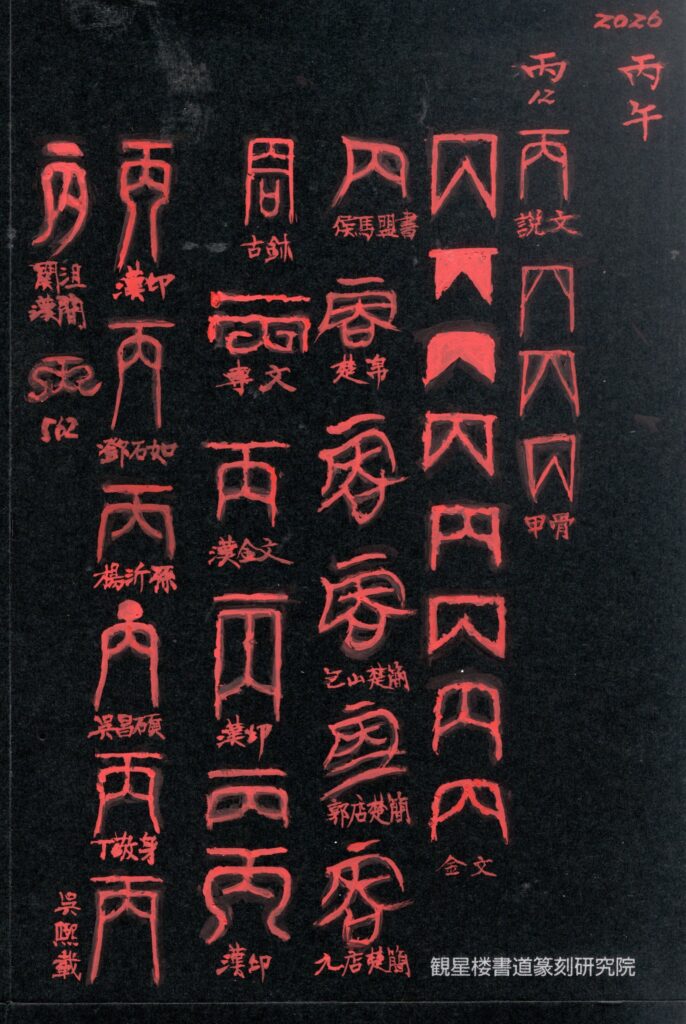 2026
丙午
丙
12
説文
甲骨
金文
侯馬盟書
楚帛
包山楚簡
郭店楚簡
九店楚簡
古鉨
專文
漢金文
漢印
漢印
漢印
鄧石如
楊沂孫
吳昌碩
丁敬身
吳熙載
関沮
漢簡
562
観星楼書道篆刻研究院